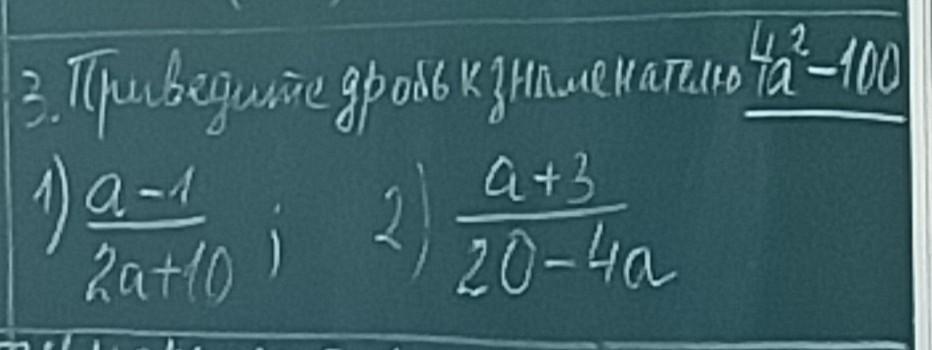 3. Приведите дробь к знаменателю 4a² – 100
1) (a – 1)/(2a + 10) ; 2) (a + 3)/(20 – 4a)